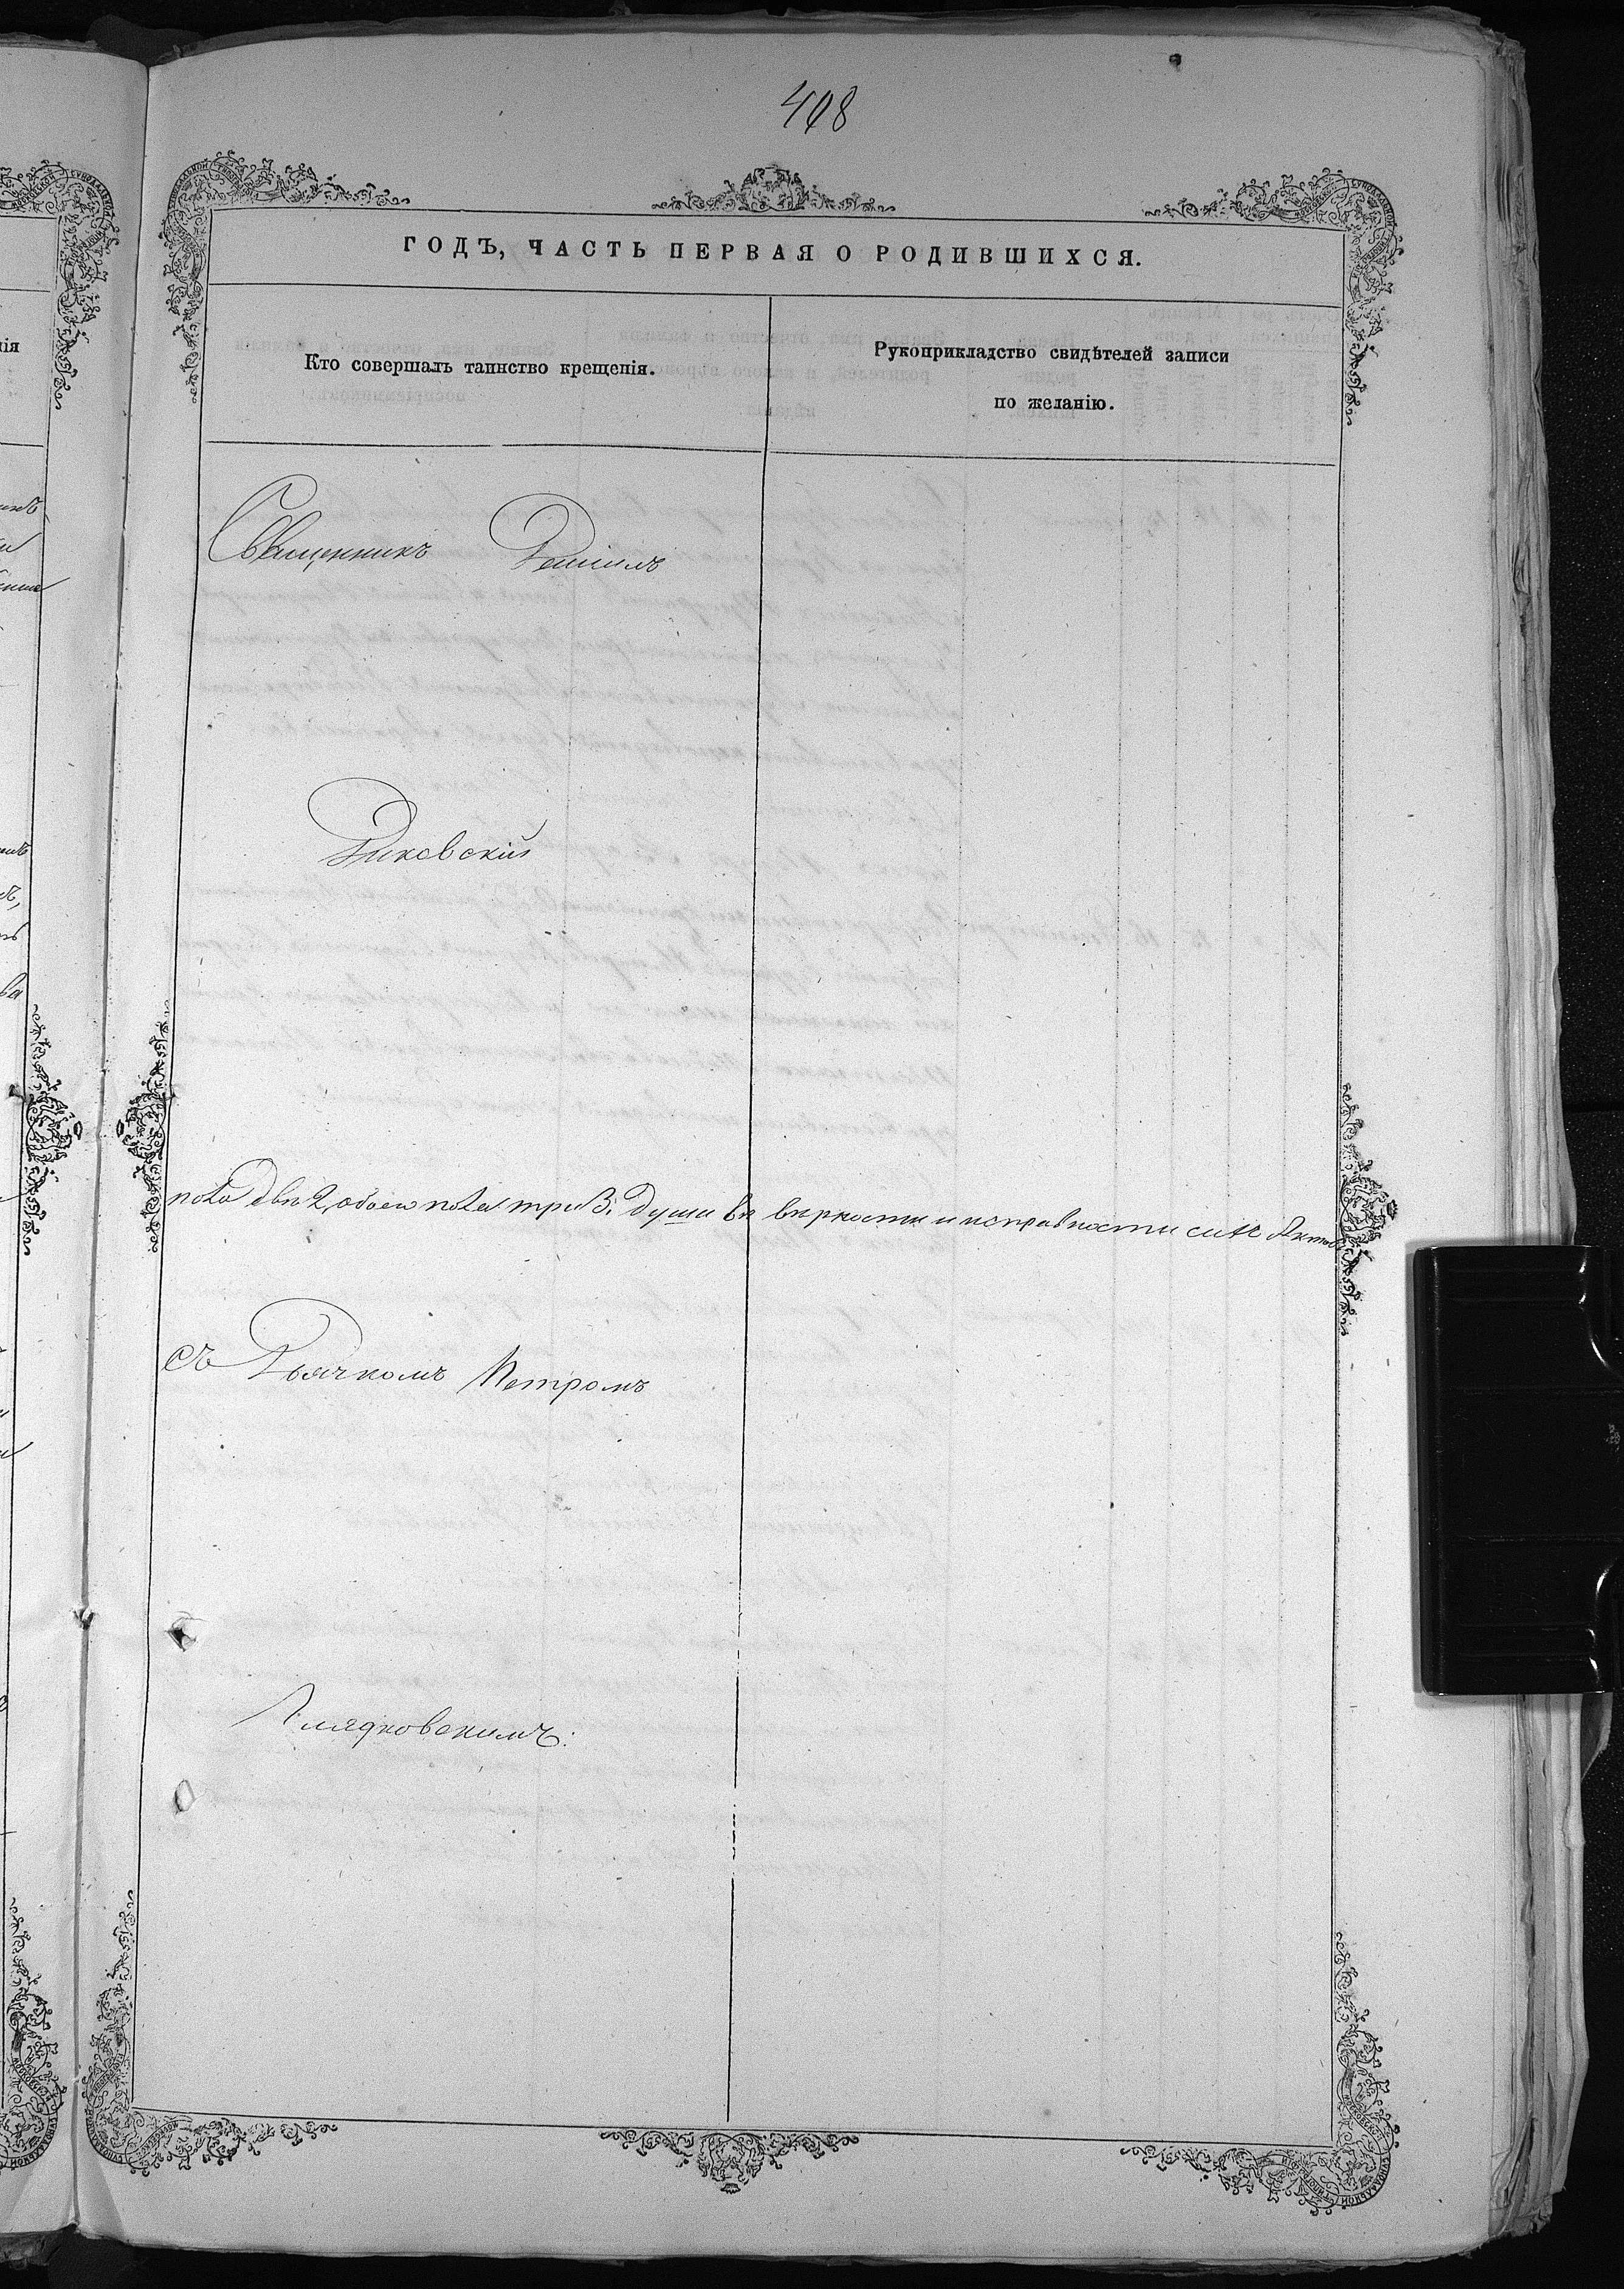 408
ГОДЪ, ЧАСТЬ ПЕРВАЯ О РОДИВШИХСЯ.
Кто совершалъ таинство крещенія.
Рукоприкладство свидѣтелей записи
по желанію.
Священникъ
Диковскій
пола двѣ 2, обоего пола три 3. души въ вѣрности и исправности сихъ Актовъ
съ Дьячкомъ Петромъ